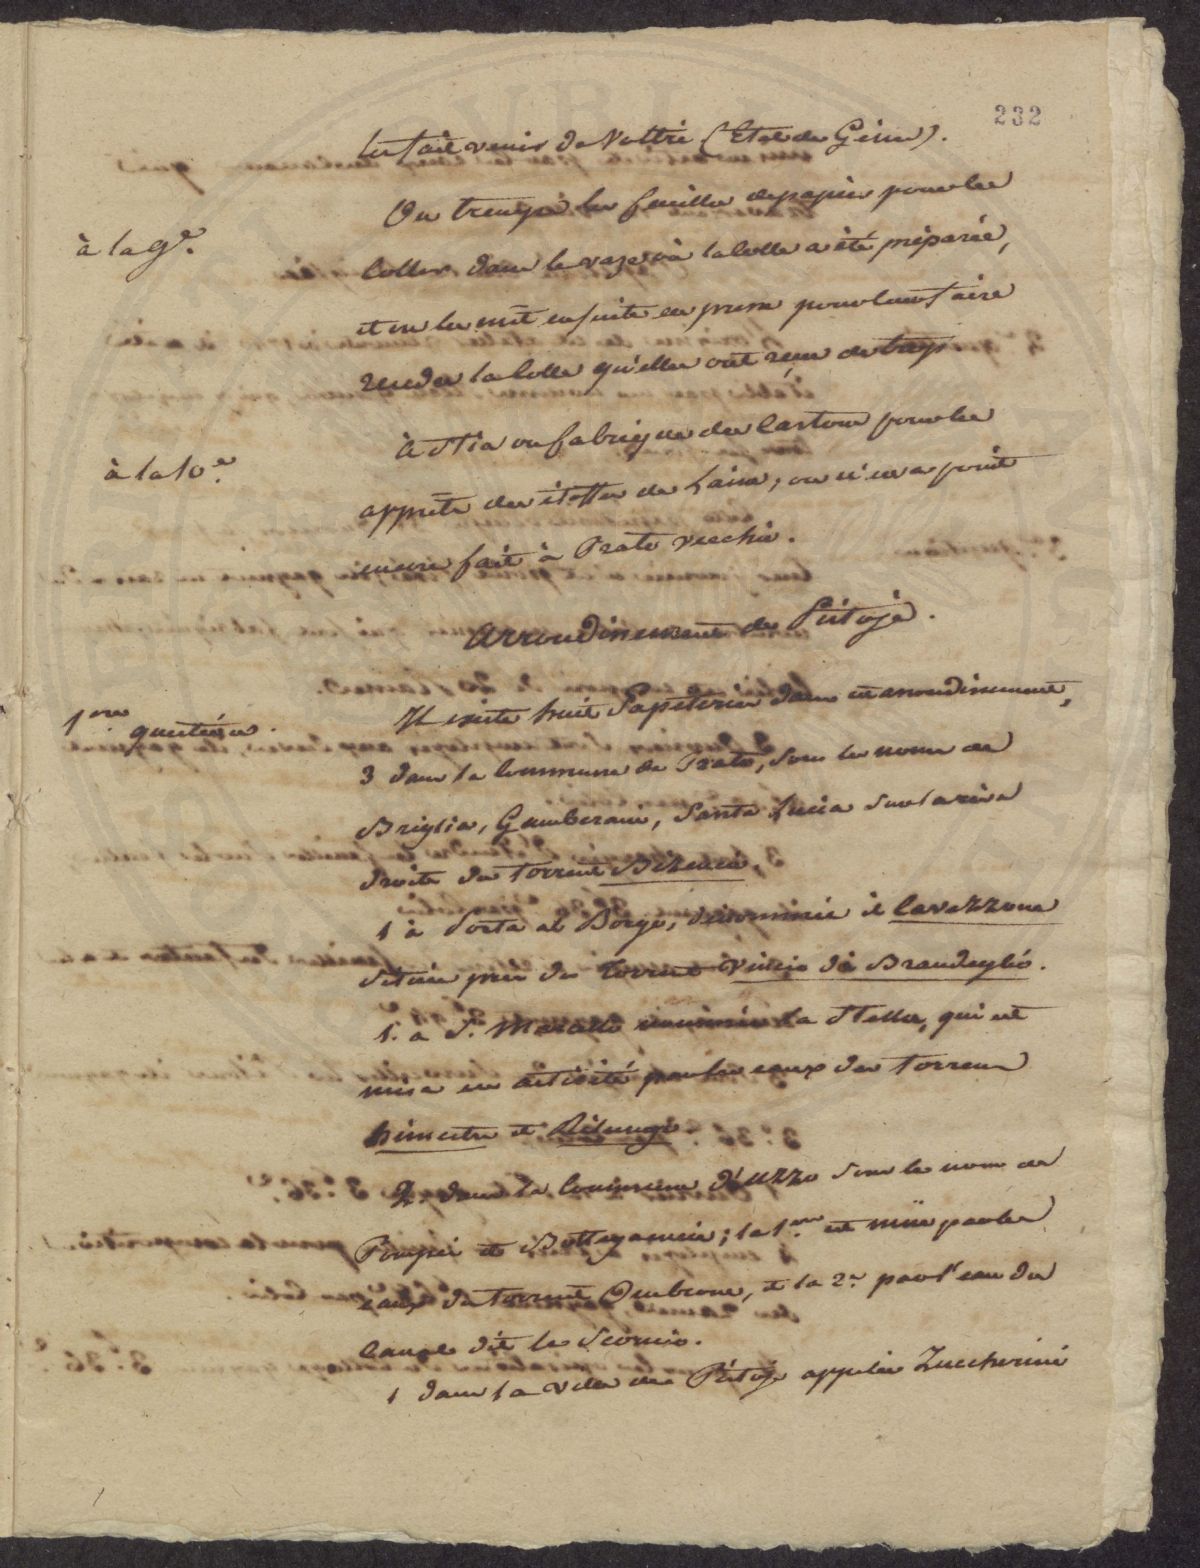 232
les fait venir de Voltri (Etat de Gênes).
à la 9e.
On trempe les feuilles de papier pour les
coller, dans le vase où la colle a été préparée,
et on les met ensuite en presse pour leur faire
rendre la colle qu'elles ont reçu de trop
à la 10e.
à Stia on fabrique des cartons pour les
apprêts des étoffes de Laine, on n'en a point
encore fait à Prato vecchio.
Arrondissement de Pistoja.
1ere question.
Il existe huit Papeteries dans cet arrondissement,
3 dans la Commune de Prato, sous les noms de
Briglia, Gamberame, Santa Lucia sur la rive
droite du torrent Bizenzio,
1 à Porta al Borgo, dénommée il Cavazzone
située près du torrent Vincio di Brandeglio.
1. à St. Marcello nommée la Stella, qui est
mise en activité par les eaux des torrens
Limestre et
2. dans la Commune d'uzzo sous les noms de
et Bottegaccia; la 1ere est mue par les
eaux du torrent Ombrone, et la 2e. par l'eau du
Canal dit le Scorcio.
1 dans la ville de Pistoje appelée Zuccherini